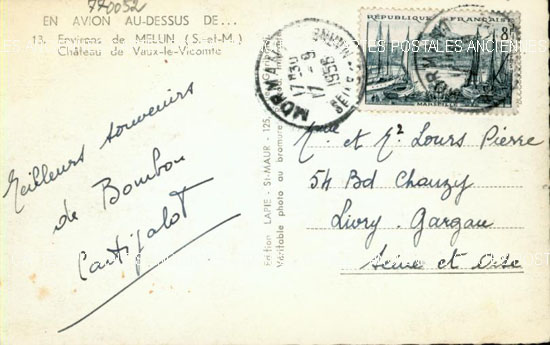 770052
EN AVION AU-DESSUS DE...
13. Environs de MELUN (S.-et-M.)
Château de Vaux-le-Vicomte
Meilleurs souvenirs
de Bombon
Edition LAPIE - St-MAUR - 125,
Véritable photo au bromure
MORMANT
17 H30
17 - 9
1958
SNE-ET-MARNE
RÉPUBLIQUE FRANÇAISE
8F
MARSEILLE
ANCIENNES CARTES POSTALES ANCIENNES
Mme et Mr Lours Pierre
54 Bd Chanzy
Livry-Gargan
Seine et Oise